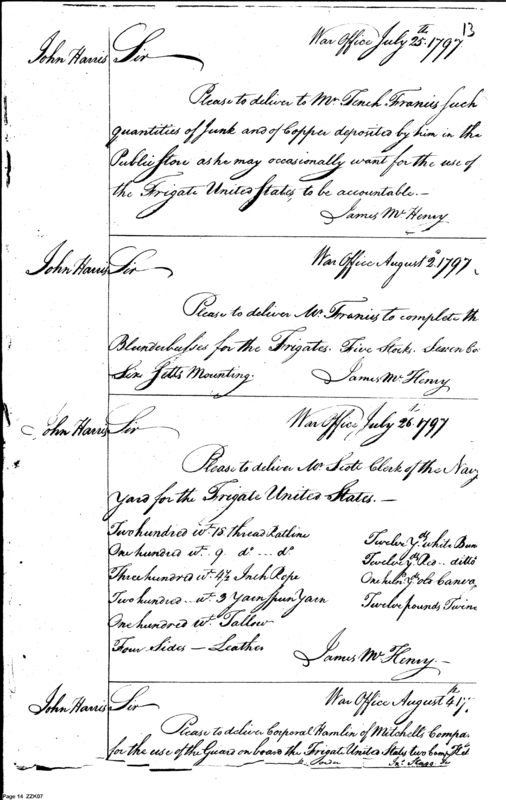 13
War Office July 25th 1797
John Harris Sir
Please to deliver to Mr Tench Francis such
quantities of Junk and of Copper deposited by him in the
Public Store as he may occasionally want for the use of
the Frigate United States, to be accountable.—
James McHenry
War Office August 2d 1797
John Harris Sir
Please to deliver Mr Francis to complete th
Blunderbusses for the Frigates. Five Stocks. Seven Bo
Six Setts Mounting.
James McHenry
War Office, July 26t 1797
John Harris Sir
Please to deliver Mr Scott Clerk of the Navy
Yard for the Frigate United States.—
Two hundred wt. 15 thread Ratline
One hundred wt. 9. do --- do
Three hundred wt. 4½ Inch Rope
Two hundred .. wt 3 Yarn Spun Yarn
One hundred wt. Tallow
Four Sides — Leather
Twelve Yds white Bun
Twelve Yds Red .. ditto
One hund Yds old Canva
Twelve pounds Twine
James McHenry.—
War Office August 4th 17
John Harris Sir
Please to deliver Corporal Hamlin of Mitchells Compa.
for the use of the Guard on board the Frigate United States two Camp
Jno. Stagg Jr
Page 14 ZZK07